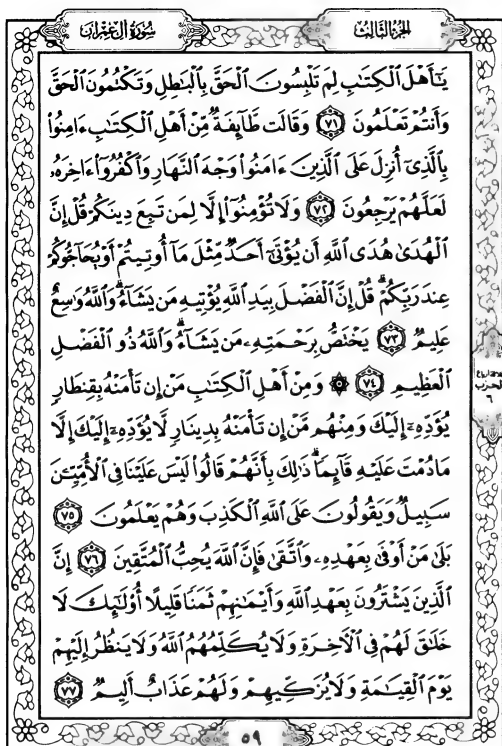 الجزء الثالث
سورة آل عمران
يَٰٓأَهۡلَ ٱلۡكِتَٰبِ لِمَ تَلۡبِسُونَ ٱلۡحَقَّ بِٱلۡبَٰطِلِ وَتَكۡتُمُونَ ٱلۡحَقَّ
وَأَنتُمۡ تَعۡلَمُونَ ٧١ وَقَالَت طَّآئِفَةٞ مِّنۡ أَهۡلِ ٱلۡكِتَٰبِ ءَامِنُواْ
بِٱلَّذِيٓ أُنزِلَ عَلَى ٱلَّذِينَ ءَامَنُواْ وَجۡهَ ٱلنَّهَارِ وَٱكۡفُرُوٓاْ ءَاخِرَهُۥ
لَعَلَّهُمۡ يَرۡجِعُونَ ٧٢ وَلَا تُؤۡمِنُوٓاْ إِلَّا لِمَن تَبِعَ دِينَكُمۡ قُلۡ إِنَّ
ٱلۡهُدَىٰ هُدَى ٱللَّهِ أَن يُؤۡتَىٰٓ أَحَدٞ مِّثۡلَ مَآ أُوتِيتُمۡ أَوۡ يُحَآجُّوكُمۡ
عِندَ رَبِّكُمۡۗ قُلۡ إِنَّ ٱلۡفَضۡلَ بِيَدِ ٱللَّهِ يُؤۡتِيهِ مَن يَشَآءُۗ وَٱللَّهُ وَٰسِعٌ
عَلِيمٞ ٧٣ يَخۡتَصُّ بِرَحۡمَتِهِۦ مَن يَشَآءُۗ وَٱللَّهُ ذُو ٱلۡفَضۡلِ
ٱلۡعَظِيمِ ٧٤ ۞ وَمِنۡ أَهۡلِ ٱلۡكِتَٰبِ مَنۡ إِن تَأۡمَنۡهُ بِقِنطَارٖ
يُؤَدِّهِۦٓ إِلَيۡكَ وَمِنۡهُم مَّنۡ إِن تَأۡمَنۡهُ بِدِينَارٖ لَّا يُؤَدِّهِۦٓ إِلَيۡكَ إِلَّا
مَا دُمۡتَ عَلَيۡهِ قَآئِمٗاۗ ذَٰلِكَ بِأَنَّهُمۡ قَالُواْ لَيۡسَ عَلَيۡنَا فِي ٱلۡأُمِّيِّـۧنَ
سَبِيلٞ وَيَقُولُونَ عَلَى ٱللَّهِ ٱلۡكَذِبَ وَهُمۡ يَعۡلَمُونَ ٧٥
بَلَىٰ مَنۡ أَوۡفَىٰ بِعَهۡدِهِۦ وَٱتَّقَىٰ فَإِنَّ ٱللَّهَ يُحِبُّ ٱلۡمُتَّقِينَ ٧٦ إِنَّ
ٱلَّذِينَ يَشۡتَرُونَ بِعَهۡدِ ٱللَّهِ وَأَيۡمَٰنِهِمۡ ثَمَنٗا قَلِيلًا أُوْلَٰٓئِكَ لَا
خَلَٰقَ لَهُمۡ فِي ٱلۡأٓخِرَةِ وَلَا يُكَلِّمُهُمُ ٱللَّهُ وَلَا يَنظُرُ إِلَيۡهِمۡ
يَوۡمَ ٱلۡقِيَٰمَةِ وَلَا يُزَكِّيهِمۡ وَلَهُمۡ عَذَابٌ أَلِيمٞ ٧٧
الحزب
٦
٥٩